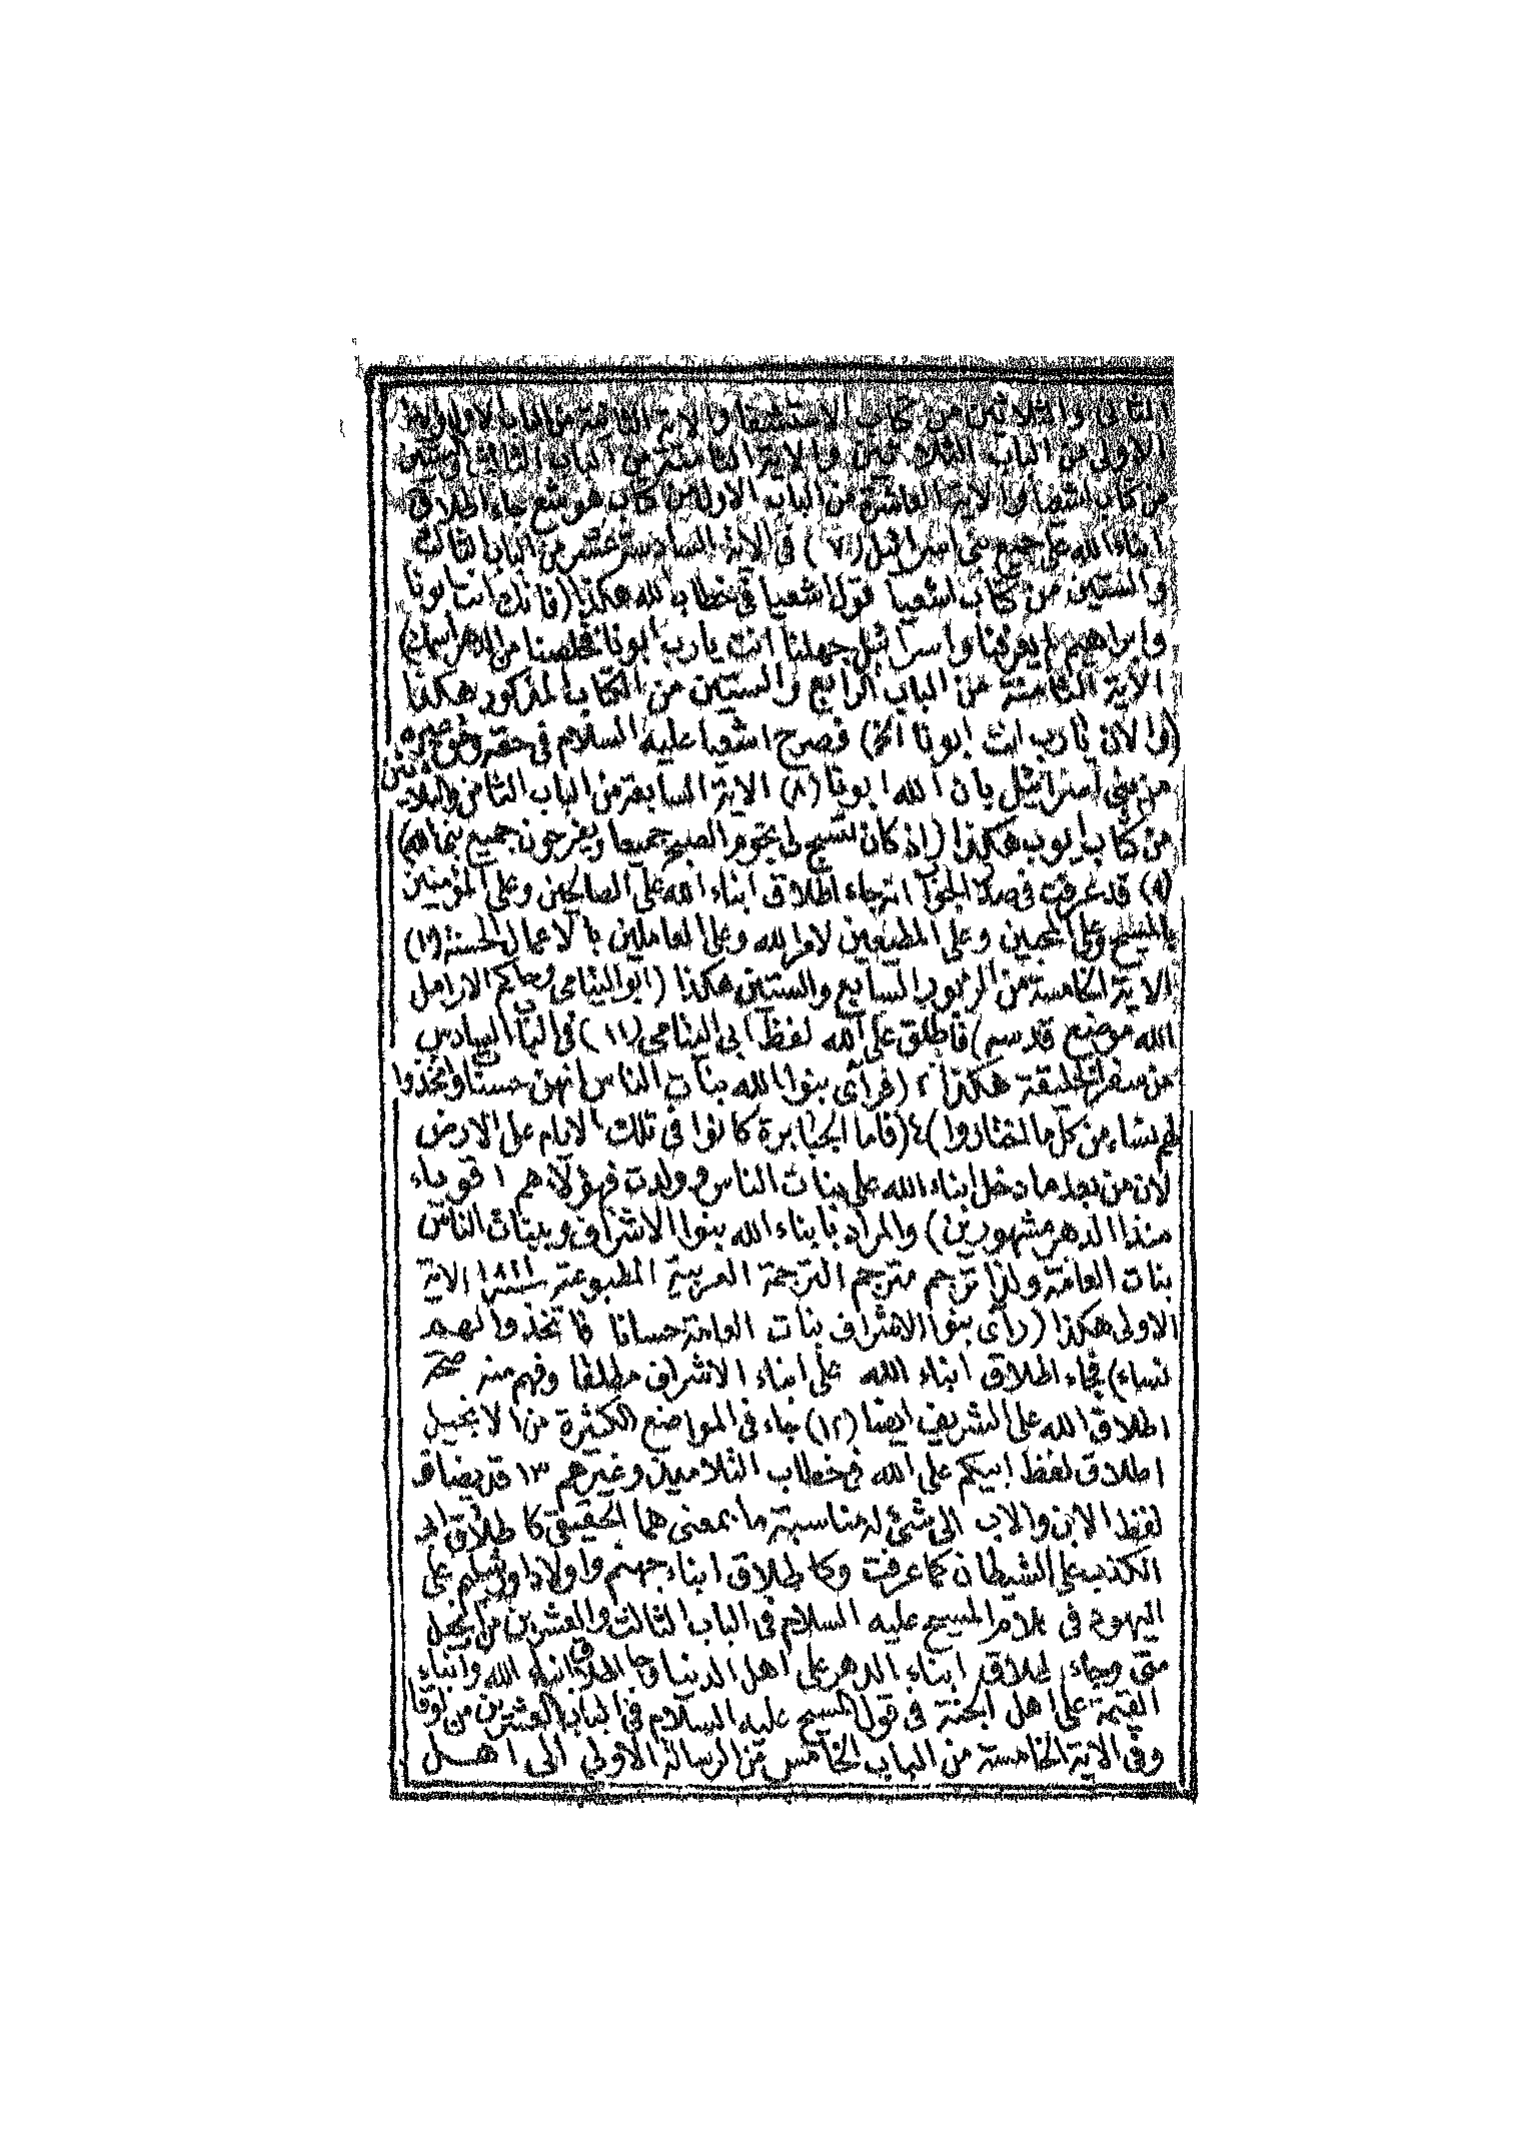 الثانى والثلاثين من كتاب الاستثنا والاية الثانية من الباب الاول والاية
الاولى من الباب الثلاثين والاية الثامنة من الباب الثالث والستين
من كتاب اشعيا والاية العاشرة من الباب الاول من كتاب هوشع جاء اطلاق
ابناء الله على جميع بنى اسرائيل (٧) فى الاية السادسة عشر من الباب الثالث
والستين من كتاب اشعيا قول اشعيا فى خطاب الله هكذا (فانك انت ابونا
وابراهيم لم يعرفنا واسرائيل جهلنا انت يارب ابونا مخلصنا من الدهر اسمك)
الاية الثامنة من الباب الرابع والستين من الكتاب المذكور هكذا
(والان يارب انت ابونا الخ) فصرح اشعيا عليه السلام فى حقه وحق غيره
من بنى اسرائيل بان الله ابونا (٨) الاية السابعة من الباب الثامن والثلاثين
من كتاب ايوب هكذا (اذ كان تسبح لى نجوم الصبح جميعا ويفرحون جميع بنى الله)
(٩) قد عرفت فى صدر الجواب انه جاء اطلاق ابناء الله على الصالحين وعلى المؤمنين
بالمسيح وعلى المحبين وعلى المطيعين لامر الله وعلى العاملين بالاعمال الحسنة (١٠)
الاية الخامسة من الزبور السابع والستين هكذا (ابو اليتامى وحاكم الارامل
الله موضع قدسه) فاطلق على الله لفظ ابى اليتامى (١١) فى الباب السادس
من سفر الخليقة هكذا ٢ (فرأى بنوا الله بنات الناس انهن حسنات واتخذوا
لهم نساء من كل ما اختاروا) ٤ (فاما الجبابرة كانوا فى تلك الايام على الارض
لان من بعد ما دخل ابناء الله على بنات الناس وولدت فهؤلاء هم اقوياء
منذ الدهر مشهورين) والمراد بابناء الله بنوا الاشراف وببنات الناس
بنات العامة ولذا ترجم مترجم الترجمة العربية المطبوعة سنة ١٨١١ الاية
الاولى هكذا (رأى بنوا الاشراف بنات العامة حسانا فاتخذوا لهم
نساء) فجاء اطلاق ابناء الله على ابناء الاشراف مطلقا وفهم منه صحة
اطلاق الله على الشريف ايضا (١٢) جاء فى المواضع الكثيرة من الانجيل
اطلاق لفظ ابيكم على الله فى خطاب التلاميذ وغيرهم ١٣ قد يضاف
لفظ الابن والاب الى شئ له مناسبة ما بمعنى هما الحقيقى كاطلاق ابى
الكذب على الشيطان كما عرفت وكاطلاق ابناء جهنم واولاد اورشليم على
اليهود فى كلام المسيح عليه السلام فى الباب الثالث والعشرين من انجيل
متى وجاء اطلاق ابناء الدهر على اهل الدنيا وجا اطلاق ابناء الله وابناء
القيمة على اهل الجنة فى قول المسيح عليه السلام فى الباب العشرين من لوقا
وفى الاية الخامسة من الباب الخامس من الرسالة الاولى الى اهل